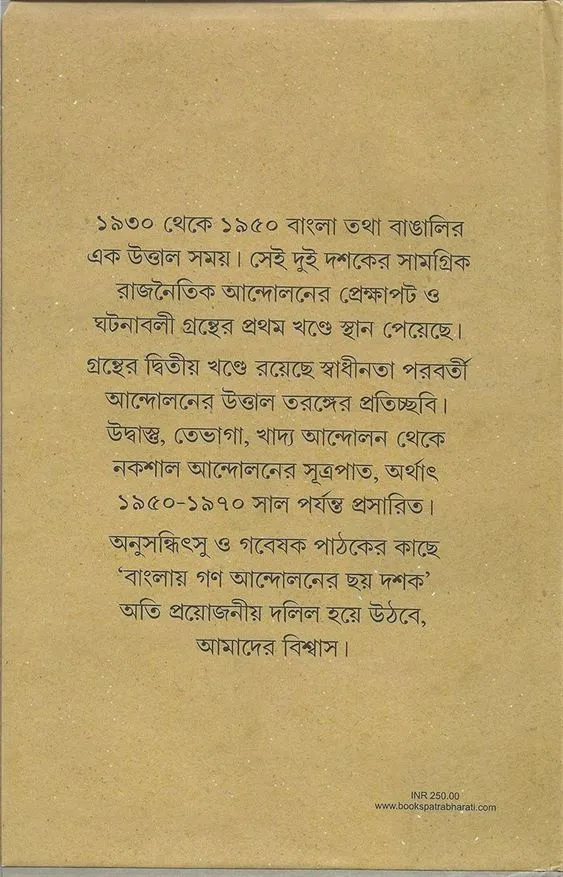 ১৯৩০ থেকে ১৯৫০ বাংলা তথা বাঙালির
এক উত্তাল সময়। সেই দুই দশকের সামগ্রিক
রাজনৈতিক আন্দোলনের প্রেক্ষাপট ও
ঘটনাবলী গ্রন্থের প্রথম খণ্ডে স্থান পেয়েছে।
গ্রন্থের দ্বিতীয় খণ্ডে রয়েছে স্বাধীনতা পরবর্তী
আন্দোলনের উত্তাল তরঙ্গের প্রতিচ্ছবি।
উদ্বাস্তু, তেভাগা, খাদ্য আন্দোলন থেকে
নকশাল আন্দোলনের সূত্রপাত, অর্থাৎ
১৯৫০-১৯৭০ সাল পর্যন্ত প্রসারিত।
অনুসন্ধিৎসু ও গবেষক পাঠকের কাছে
‘বাংলায় গণ আন্দোলনের ছয় দশক’
অতি প্রয়োজনীয় দলিল হয়ে উঠবে,
আমাদের বিশ্বাস।
INR 250.00
www.bookspatrabharati.com